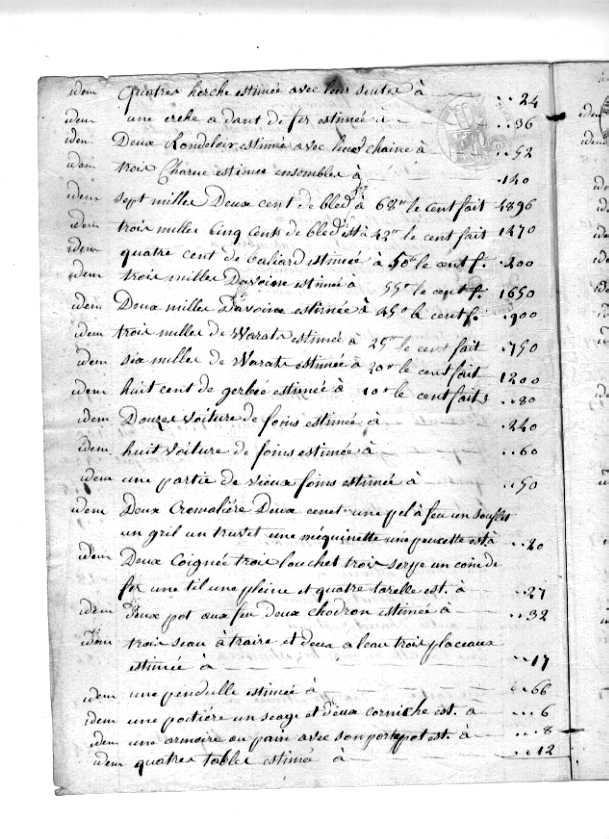 idem quatres herche estimée avec leur seutes à ..24
idem une erche a dant de fer estimée à ..36
idem Deux Rondeloir estimée avec leurs chaine à ..52
idem trois Charue estimée ensembles à .140
idem sept milles Deux cent de bled à 68# le cent fait 4896
idem trois milles Cinq Cents de bled est à 42# le cent fait 1470
idem quatre cent de estimée à 50# le cent f. .200
idem trois milles Davoine estimée à 55# le cent f. 1650
idem Deux milles Davoine estimée à 45# le cent f. .900
idem trois milles de Warats estimée à 25# le cent fait .750
idem six milles de Warats estimée à 20# le cent fait 1200
idem huit cent de gerbée estimée à 10# le cent fait ..80
idem Douzes voiture de foins estimée à .240
idem huit voiture de foins estimée à ..60
idem une partie de vieux foins estimée à ..50
idem Deux Cromaliére Deux cenet une pel à feu un soufflet
un gril un truvet une méquinette une pencette est à ..20
idem Deux Coignée trois louchet trois serpe un coin de
fer une til une pleine et quatre tarelle est. à ..27
idem Deux pot aux feu Deux chodron estimée à ..32
idem trois seau à traire et deux a leau trois placeaux
estimée à ..17
idem une pendulle estimée à ..66
idem une potiére un seage et deux corniche est. à ...6
idem une armoire au pain avec son porte pot est. à ...8
idem quatres tables estimé à ...12